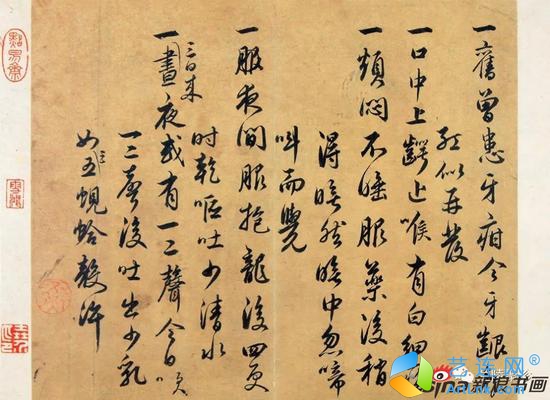 一舊曾患牙疳今牙齦
紅似再發
一口中上齶上喉有白細
一煩悶不睡服藥後稍
得睡然睡中忽啼
叫而覺
一服夜間服抱龍後四更
時乾嘔吐少清水
三日来
一晝夜或有一二聲今日
一二聲後吐出少乳
如五蜆蛤殼許
艺连网
sina新浪书画